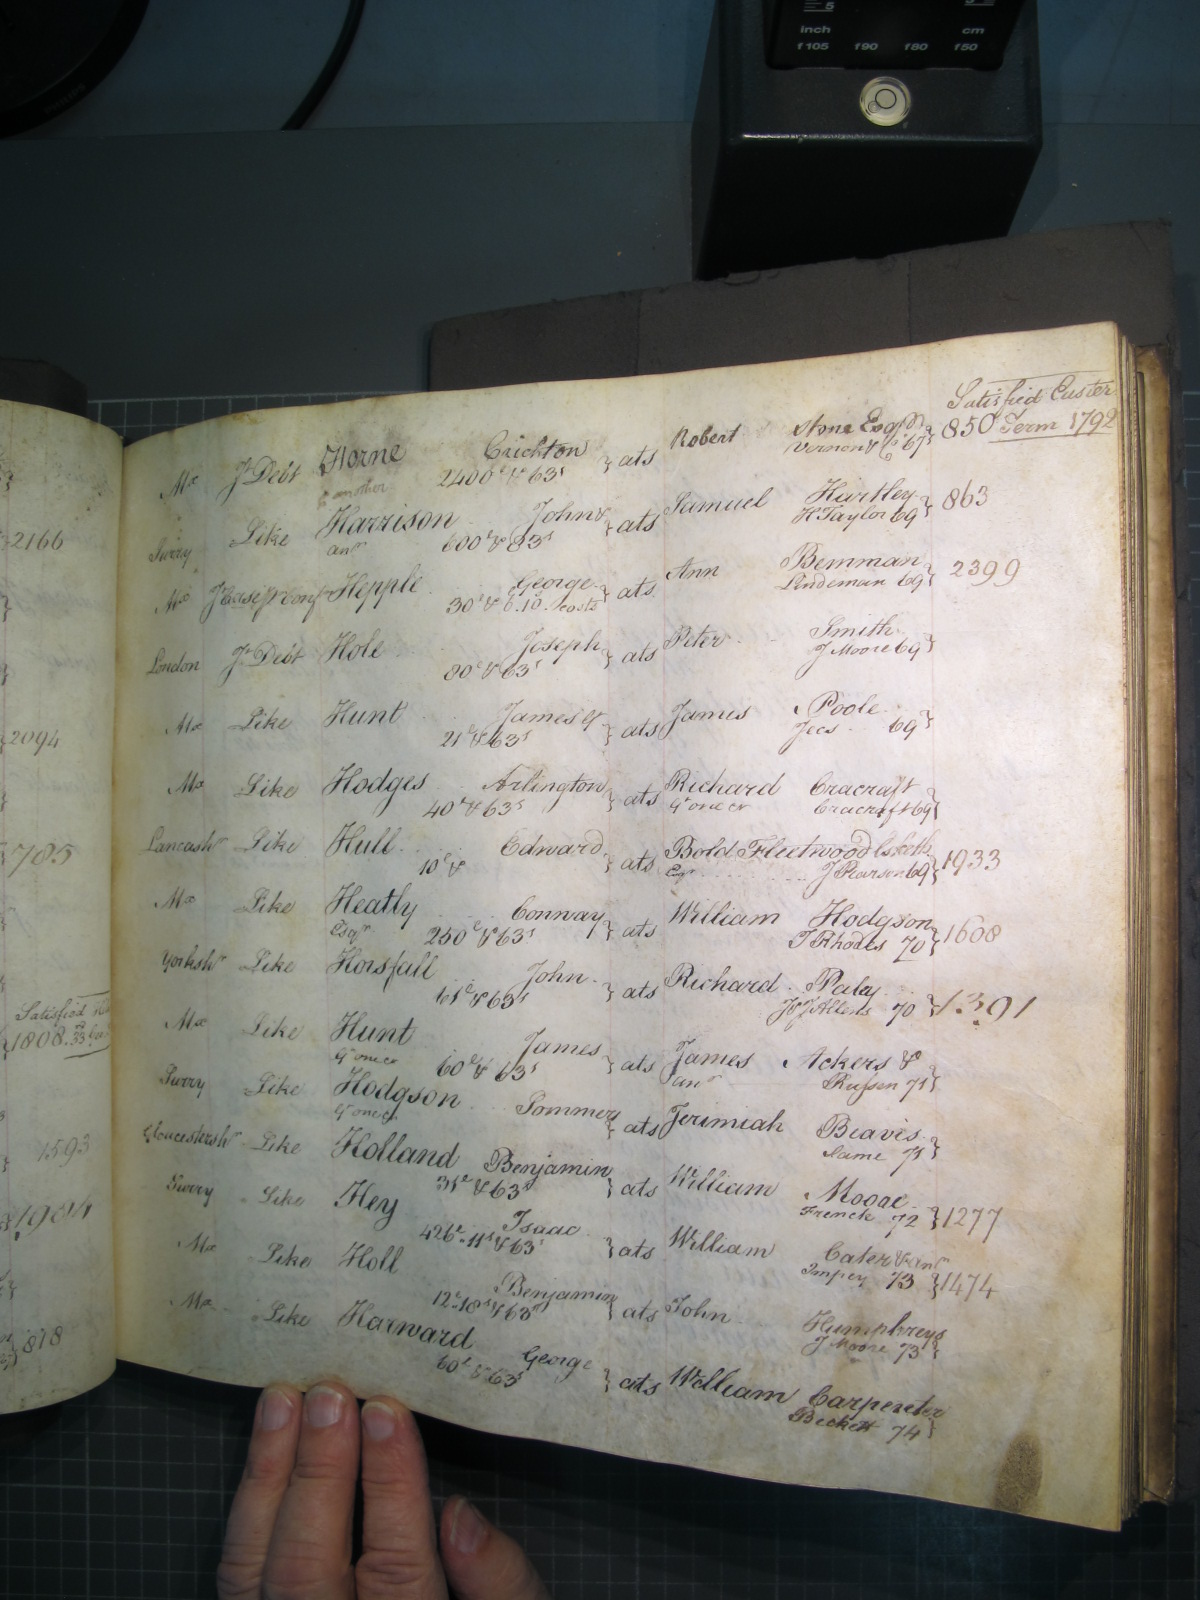 5
inch cm
f105 f90 f80 f50
PHILIPS
2166
2094
785
Satisfied
1808.
1593
1904
878
Satisfied Easter
Term 1792
Mx Jt Debt Horne Crichton } ats Robert Stone Esqr & } 850
& another 2400£ & 63s Vernon & Co 67
Surry Like Harrison John & } ats Samuel Hartley } 863
anr 600£ & 83s H Taylor 69
Mx Hepple George } ats Ann Bemman } 2399
30£ & 6.10. costs Lindeman 69
London Jt Debt Hole Joseph } ats Peter Smith }
80£ & 63s J Moore 69
Mx Like Hunt James & } ats James Poole }
21£ & 63s Jecs 69
Mx Like Hodges Arlington } ats Richard Cracraft }
40£ & 63s Gt one &c Cracraft 69
Lancashr Like Hull Edward } ats Bold Fleetwood Hesketh } 1933
10£ & Esqr J Pearson 69
Mx Like Heatly Connway } ats William Hodgson } 1608
Esqr 250£ & 63s T Rhodes 70
Yorkshr Like Horsfall John } ats Richard Paley } 1391
61£ & 63s Allens 70
Mx Like Hunt James } ats James Ackers & }
Gt one &c 60£ & 63s anr Russen 71
Surry Like Hodgson Pommery } ats Jerimiah Beavis }
Gt one &c Same 71
Gloucestershr Like Holland Benjamin } ats William Moore } 1277
31£ & 63s French 72
Surry Like Hey Isaac } ats William Cater & anr } 1474
426£ . 11s & 63s Impey 73
Mx Like Holl Benjamin } ats John Humphreys }
12£ . 18s & 63s J Moore 73
Mx Like Harward George } ats William Carpenter }
60£ & 63s Beckett 74